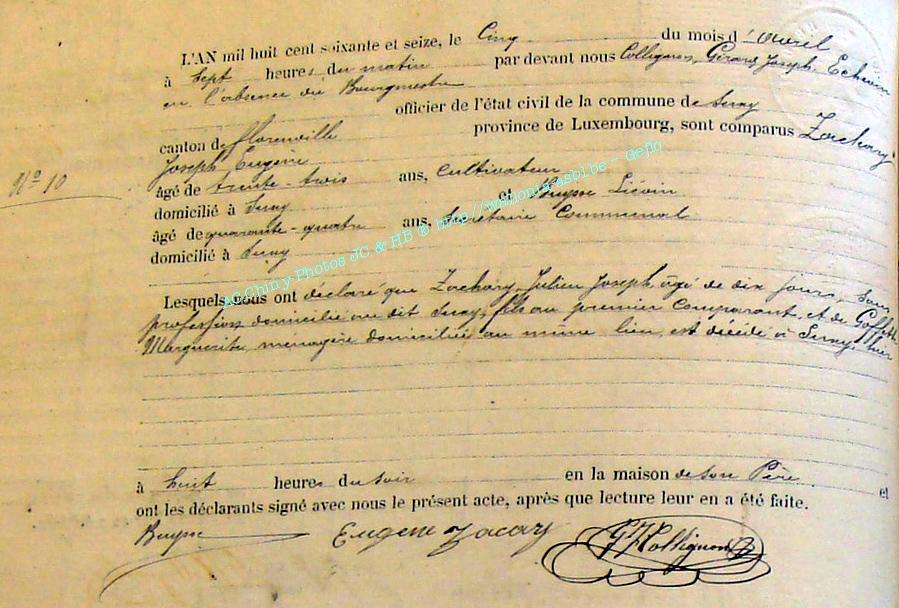 L'AN mil huit cent soixante et seize, le Cinq du mois d'Avril
à Sept heures du matin par devant nous Collignon, Gérard Joseph, Echevin
en l'absence du Bourgmestre
officier de l'état civil de la commune de Suxy
canton de Florenville province de Luxembourg, sont comparus Zachary
Joseph Eugene
N° 10
âgé de trente-trois ans, Cultivateur
domicilié à Suxy et Buysse Liévin
âgé de quarante-quatre ans, Secrétaire Communal
domicilié à Suxy
AC Chiny Photos JC & HB @ http://wallonia-asbl.be - Gepo
Lesquels nous ont déclaré que Zachary, Julien Joseph, âgé de dix jours, sans
profession domicilié au dit Suxy, fils au premier Comparant, et de Goffette
Marguerite, menagère domiciliée au même lieu, est décédé à Suxy, hier
à huit heures du soir en la maison de son Père et
ont les déclarants signé avec nous le présent acte, après que lecture leur en a été faite.
Buysse Eugene Zacary GJ Collignon